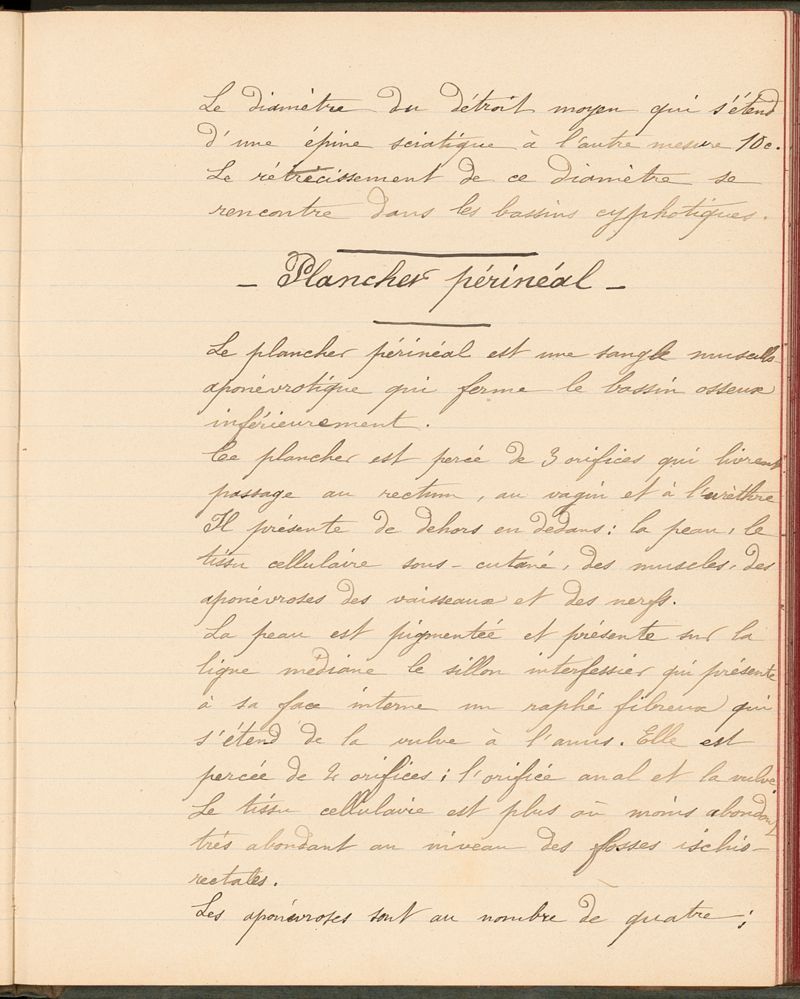 Le diamètre du détroit moyen qui s'étend
d'une épine sciatique à l'autre mesure 10c.
Le rétrécissement de ce diamètre se
rencontre dans les bassins cyphotiques.
- Plancher périnéal -
Le plancher périnéal est une sangle musculo-
aponévrotique qui ferme le bassin osseux
inférieurement.
Ce plancher est percé de 3 orifices qui livrent
passage au rectum, au vagin et à l'urèthre
Il présente de dehors en dedans: la peau, le
tissu cellulaire sous-cutané, des muscles, des
aponévroses des vaisseaux et des nerfs.
La peau est pigmentée et présente sur la
ligne médiane le sillon interfessier qui présente
à sa face interne un raphé fibreux qui
s'étend de la vulve à l'anus. Elle est
percée de 2 orifices; l'orifice anal et la vulve.
Le tissu cellulaire est plus où moins abondant
très abondant au niveau des fosses ischio-
rectales.
Les aponévroses sont au nombre de quatre;